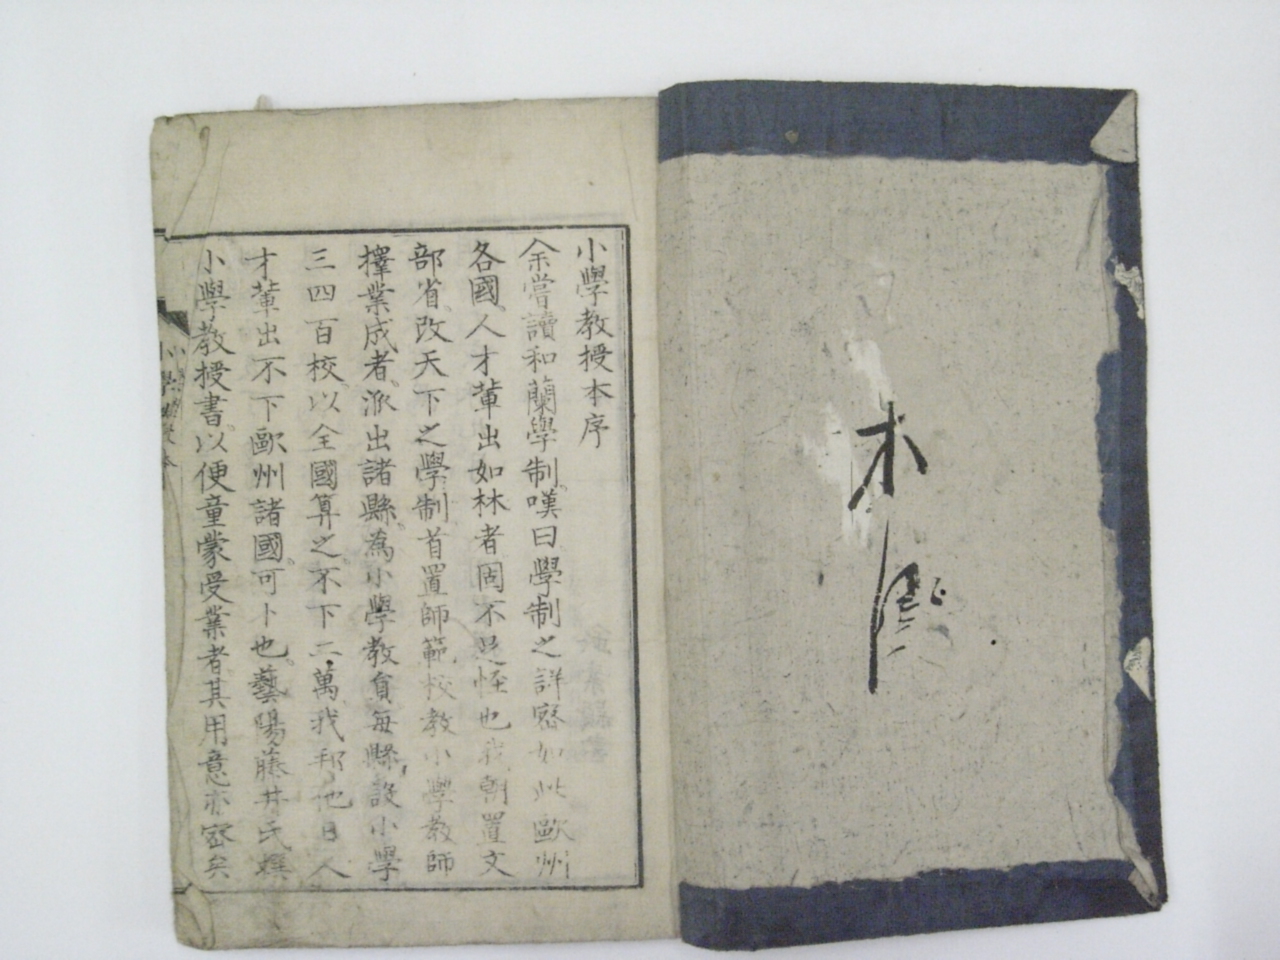 小學教授本序
余嘗讀和蘭學制嘆曰學制之詳密如此歐州
各國人才輩出如林者固不足恠也我朝置文
部省改天下之學制首置師範校教小學教師
擇業成者派出諸縣為小學教員每縣設小學
三四百校以全國算之不下二萬我邦他日人
才輩出不下歐州諸國可卜也藝陽藤井氏撰
小學教授書以便童蒙受業者其用意亦密矣